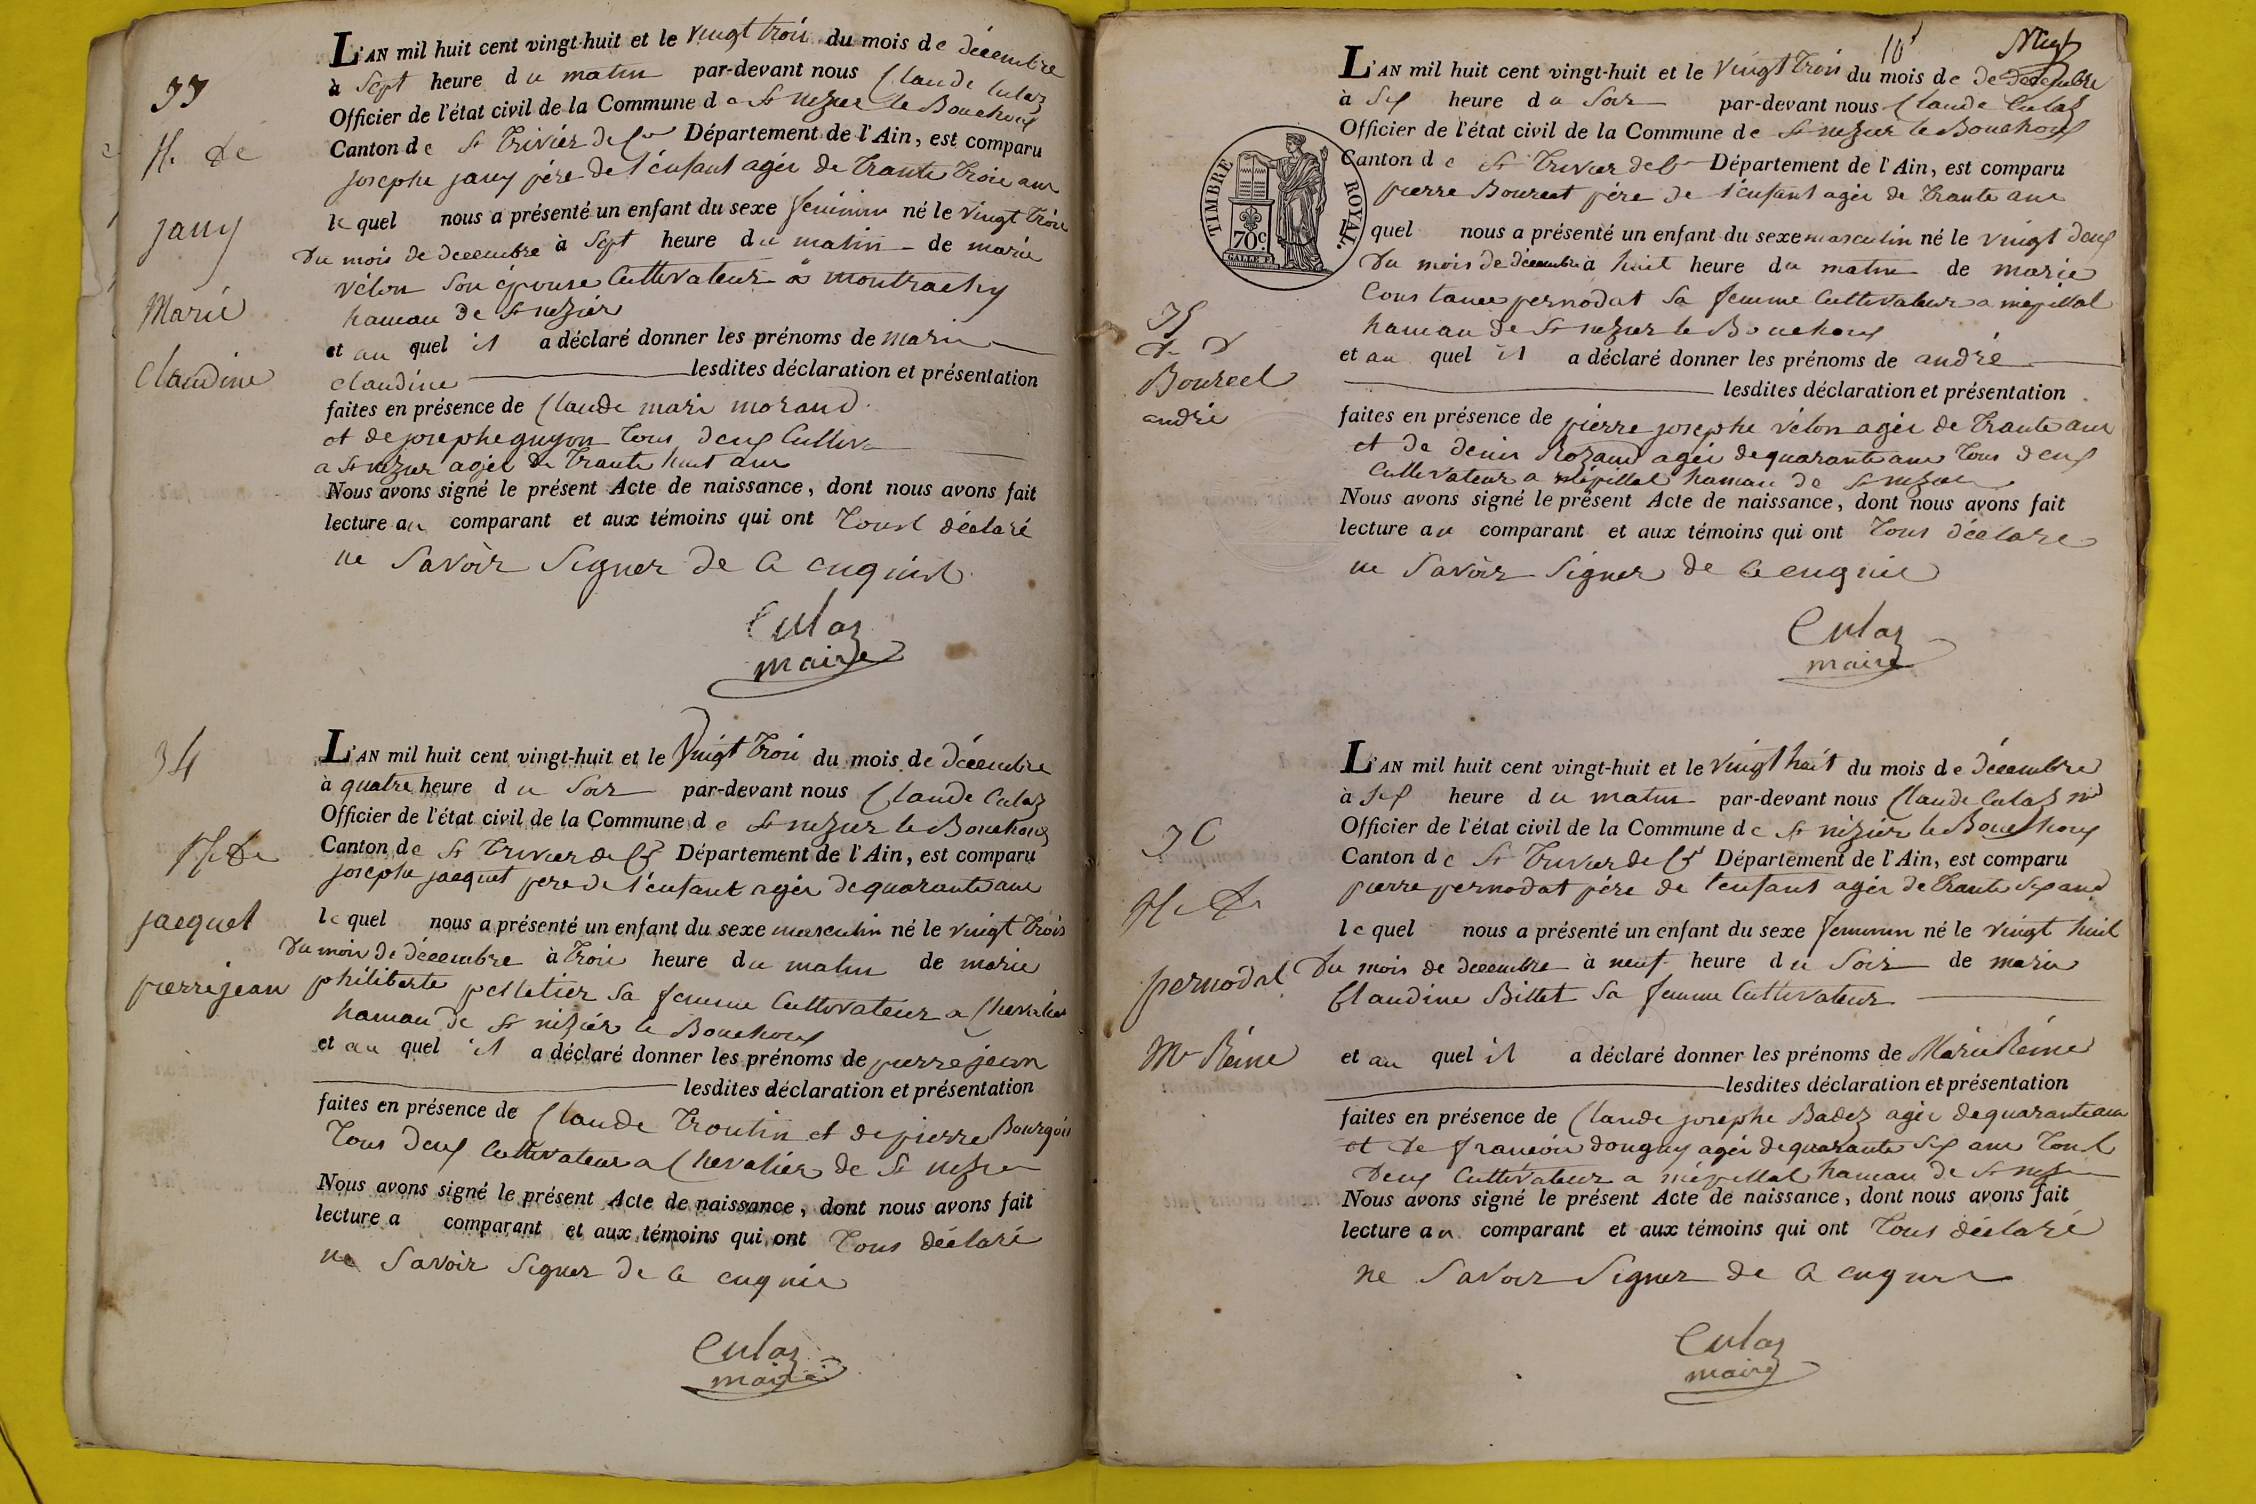 33
Nce de
jany
Marie
Claudine
L'AN mil huit cent vingt-huit et le vingt troi du mois de décembre
à Sept heure du matin par-devant nous Claude Culaz
Officier de l'état civil de la Commune de St nezier le Bouchoux
Canton de St Trivier de Département de l'Ain, est comparu
josephe jany père de l'enfant agée de trante troi ans
lequel nous a présenté un enfant du sexe feminin né le vingt troi
du mois de decembre à Sept heure du matin de marie
vélon Son épouse Cultivateur a montrachy
hamau de St nezier
et au quel il a déclaré donner les prénoms de marie
claudine lesdites déclaration et présentation
faites en présence de Claude marie morand
et de josephe guyon tous deux Cultiv
a St nezier agée de trante huit ans
Nous avons signé le présent Acte de naissance, dont nous avons fait
lecture au comparant et aux témoins qui ont tous déclaré
ne Savoir Signer de ce enquis
Culaz
maire
34
Nce de
jacquet
pierre jean
L'AN mil huit cent vingt-huit et le vingt troi du mois de décembre
à quatre heure du Soir par-devant nous Claude Culaz
Officier de l'état civil de la Commune de St nezier le Bouchoux
Canton de St Trivier de Département de l'Ain, est comparu
josephe jacquet pere de l'enfant agée de quarante ans
lequel nous a présenté un enfant du sexe masculin né le vingt trois
du mois de décembre à troi heure du matin de marie
philiberte pelletier Sa femme Cultivateur a Chevalier
hamau de St nizier le Bouchoux
et au quel il a déclaré donner les prénoms de pierre jean
lesdites déclaration et présentation
faites en présence de Claude Troutin et de pierre Bourgois
tous deux Cultivateur a Chevalier de St nezier
Nous avons signé le présent Acte de naissance, dont nous avons fait
lecture a comparant et aux témoins qui ont tous déclaré
ne Savoir Signer de ce enquis
Culaz
maire
10
TIMBRE ROYAL.
70c.
35
Bourcet
andré
L'AN mil huit cent vingt-huit et le vingt troi du mois de de decembre
à Six heure du Soir par-devant nous Claude Culaz
Officier de l'état civil de la Commune de St nezier le Bouchoux
Canton de St Trivier de Département de l'Ain, est comparu
pierre Bourcet père de l'enfant agée de trante ans
quel nous a présenté un enfant du sexe masculin né le vingt deux
du mois de décembre à huit heure du matin de marie
Constance pernodat Sa femme Cultivateur a mépillat
hamau de St nezier le Bouchoux
et au quel il a déclaré donner les prénoms de andré
lesdites déclaration et présentation
faites en présence de pierre josephe vélon agée de trante ans
et de denis Rozand agée de quarante ans tous deux
Cultivateur a mépillat hamau de St nezier
Nous avons signé le présent Acte de naissance, dont nous avons fait
lecture au comparant et aux témoins qui ont tous déclare
ne Savoir Signer de ce enquis
Culaz
maire
36
Nce de
pernodat
Me Réine
L'AN mil huit cent vingt-huit et le vingt huit du mois de décembre
à Six heure du matin par-devant nous Claude Culaz
Officier de l'état civil de la Commune de St nizier le Bouchoux
Canton de St Trivier de Département de l'Ain, est comparu
pierre pernodat père de l'enfant agée de trante Six ans
lequel nous a présenté un enfant du sexe feminin né le vingt huit
du mois de decembre à neuf heure du Soir de marie
Claudine Billet Sa femme Cultivateur
et au quel il a déclaré donner les prénoms de Marie Réine
lesdites déclaration et présentation
faites en présence de Claude josephe Badez agée de quarante ans
et de francois dougny agée de quarante Six ans tous
deux Cultivateur a mépillat hamau de St nezier
Nous avons signé le présent Acte de naissance, dont nous avons fait
lecture au comparant et aux témoins qui ont tous déclaré
ne Savoir Signer de ce enquis
Culaz
maire